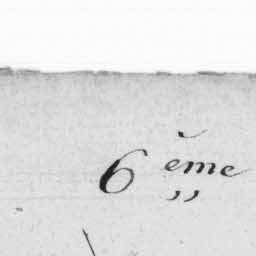 6 ème